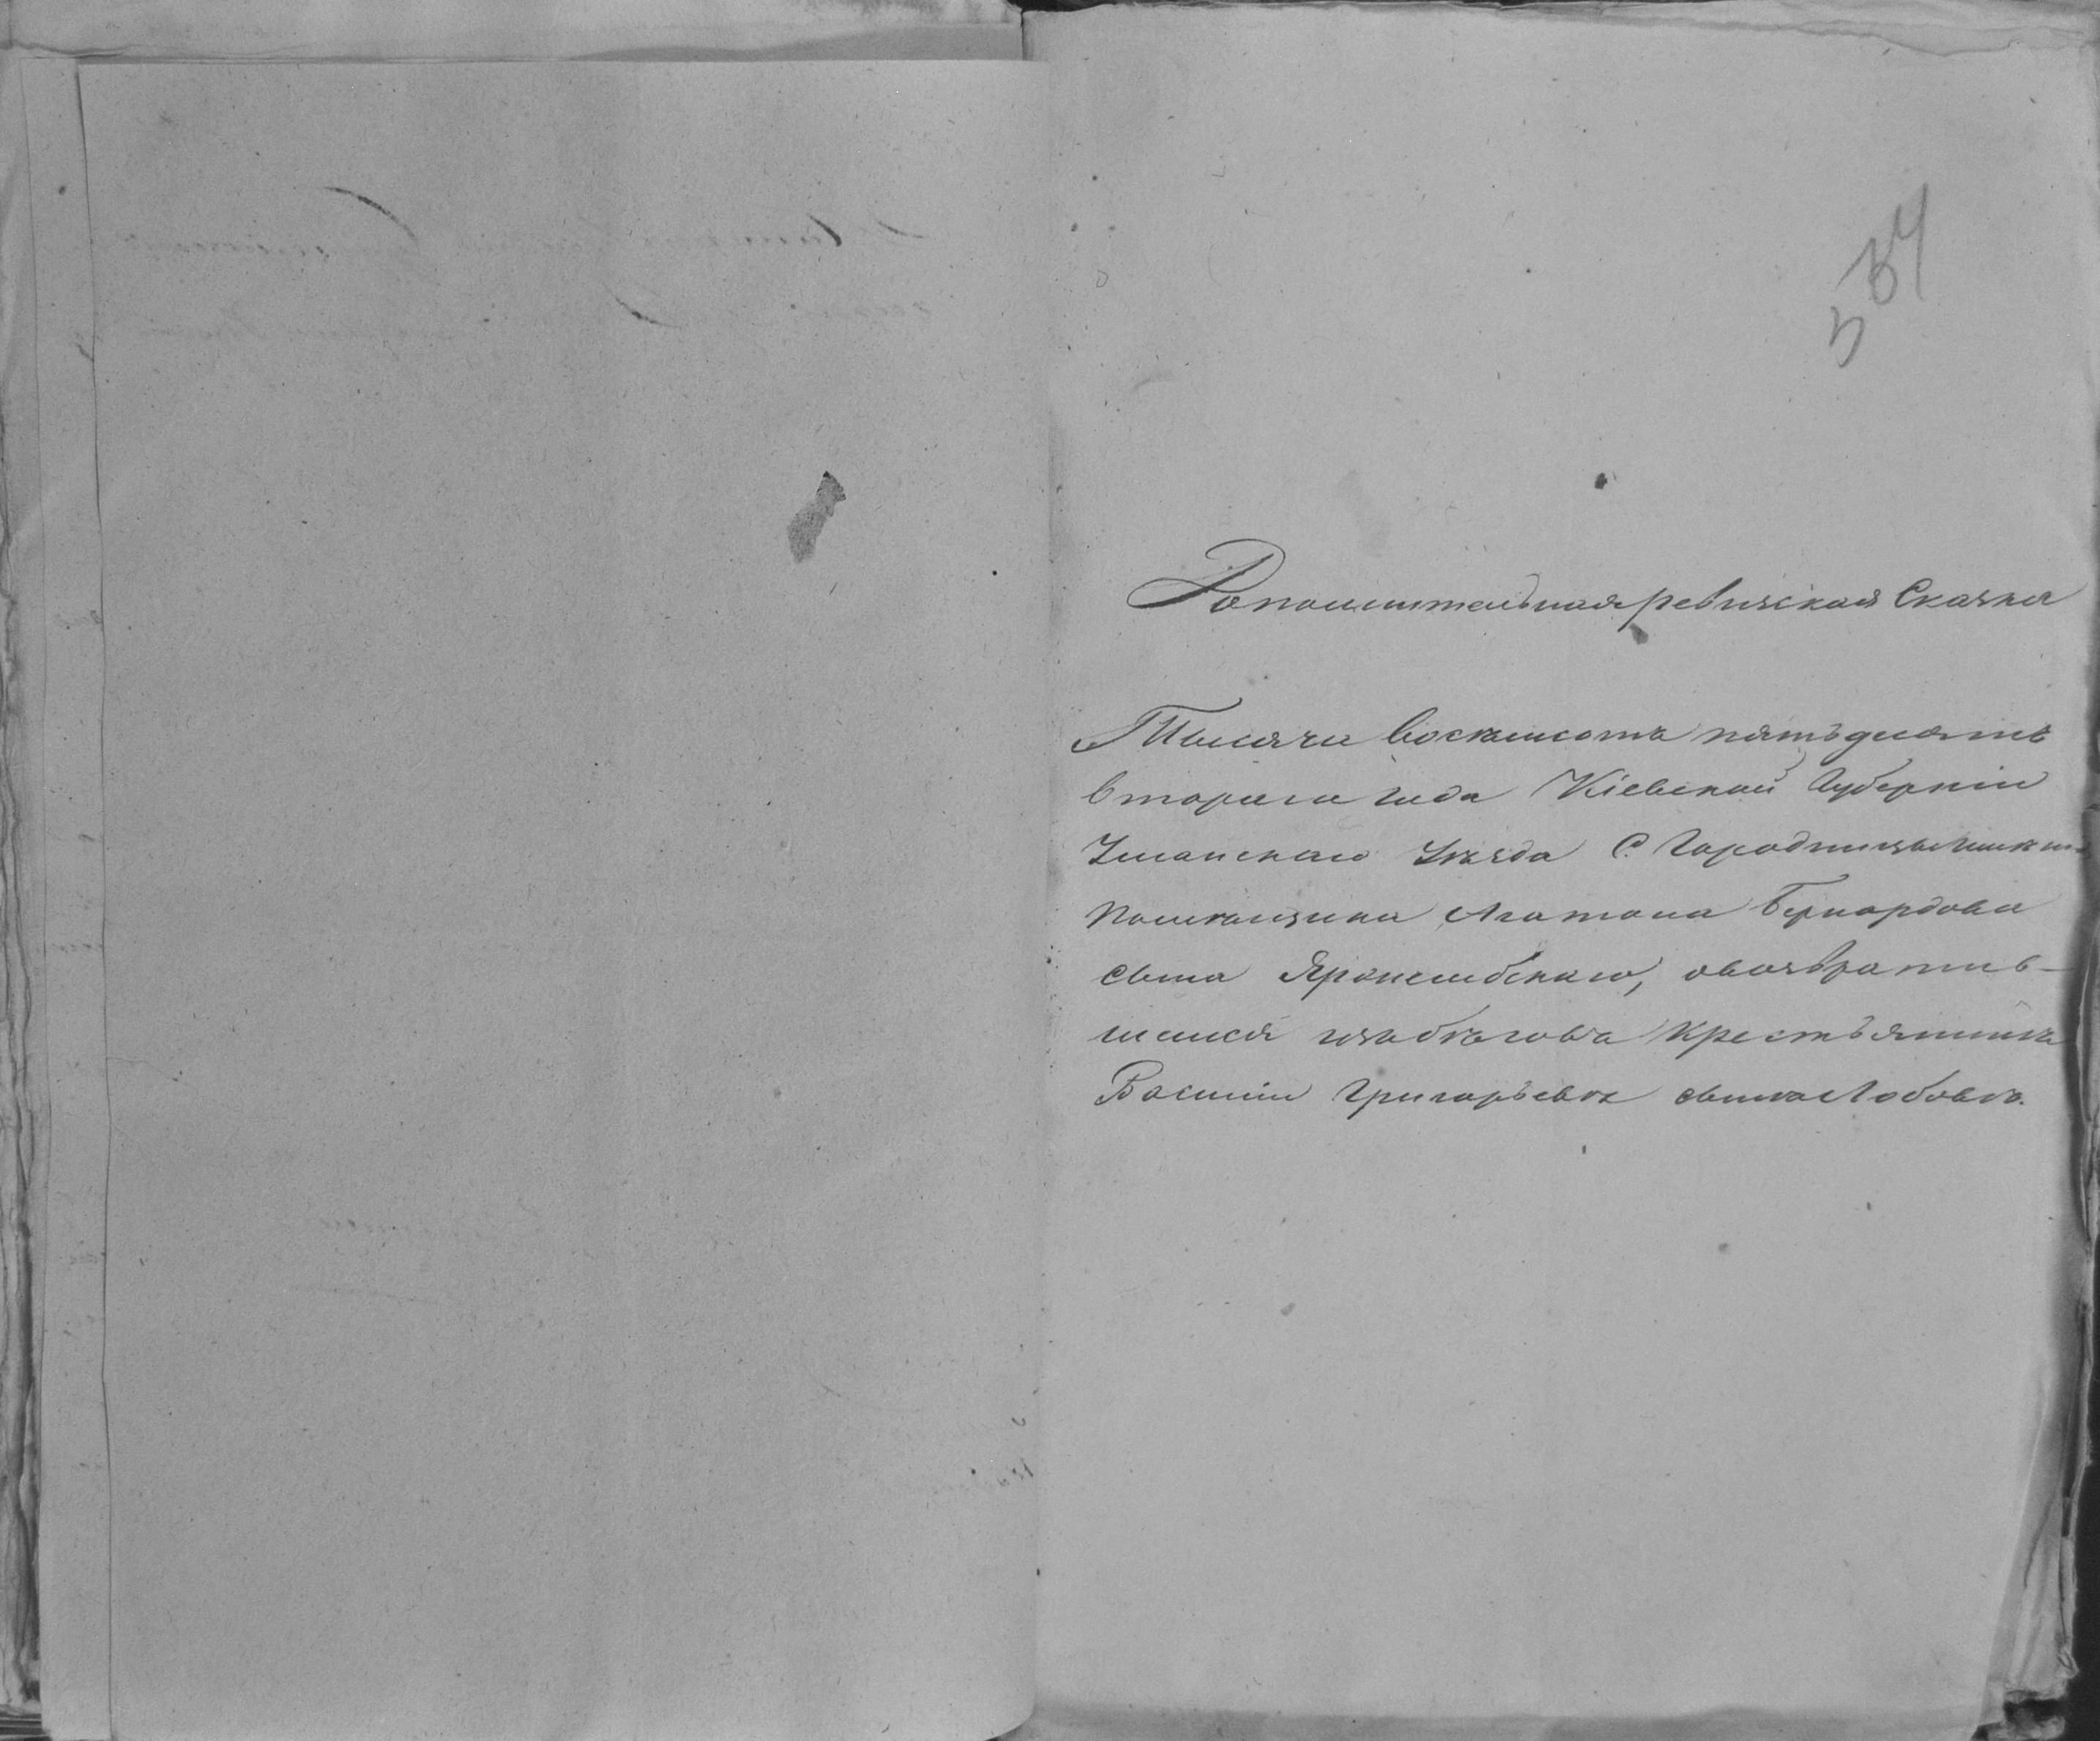 34
5
Дополнительная ревизская Сказка
Тысяча восемьсотъ пятьдесятъ
втораго года Кіевской Губерніи
Уманскаго Уѣзда С. Городницы
Помѣщика Агатона Бернардова
сына Ярошинскаго, овозвратив-
шимся изъ бѣговъ Крестьянинѣ
Василіи Григорьевѣ сынѣ Лобовѣ.